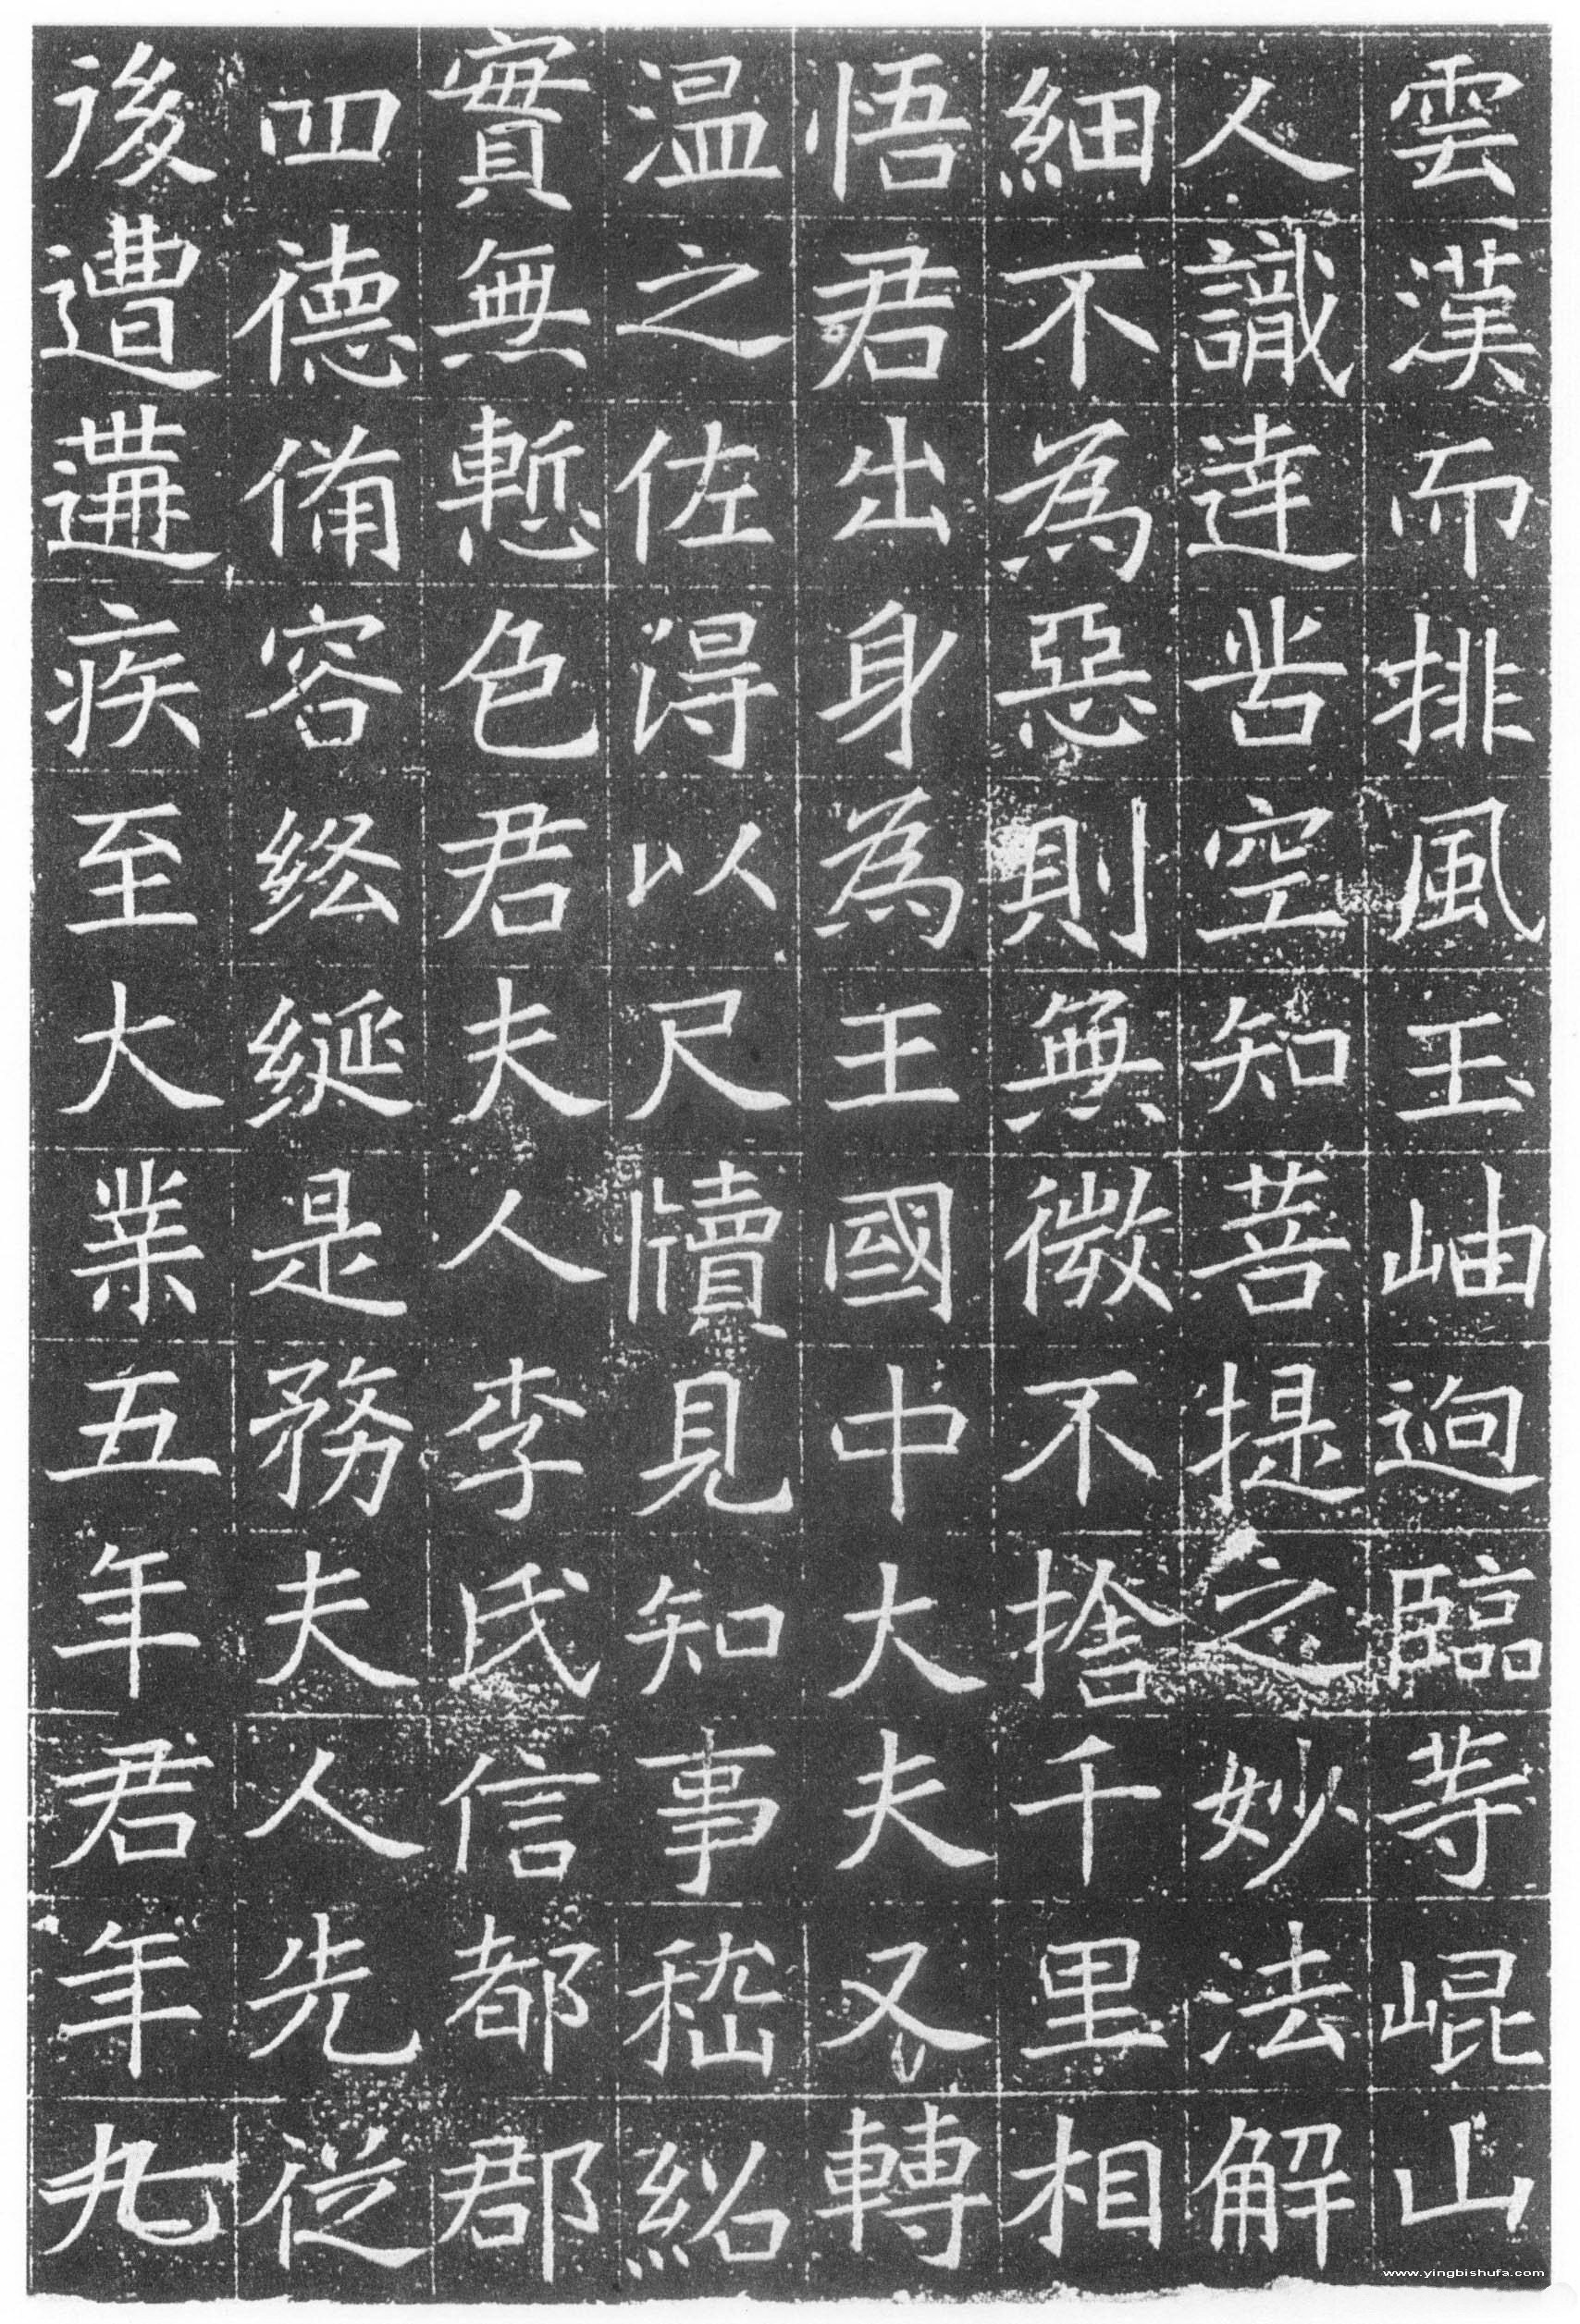 雲漢而排風玉岫迥臨等崐山
人識達苦空知菩提之妙法解
細不為惡則無微不捨千里相
悟君出身為王國中大夫又轉
温之佐得以尺牘見知事嵇紹
實無慙色君夫人李氏信都郡
四德備容綌綖是務夫人先從
後遭遘疾至大業五年君年九
www.yingbishufa.com